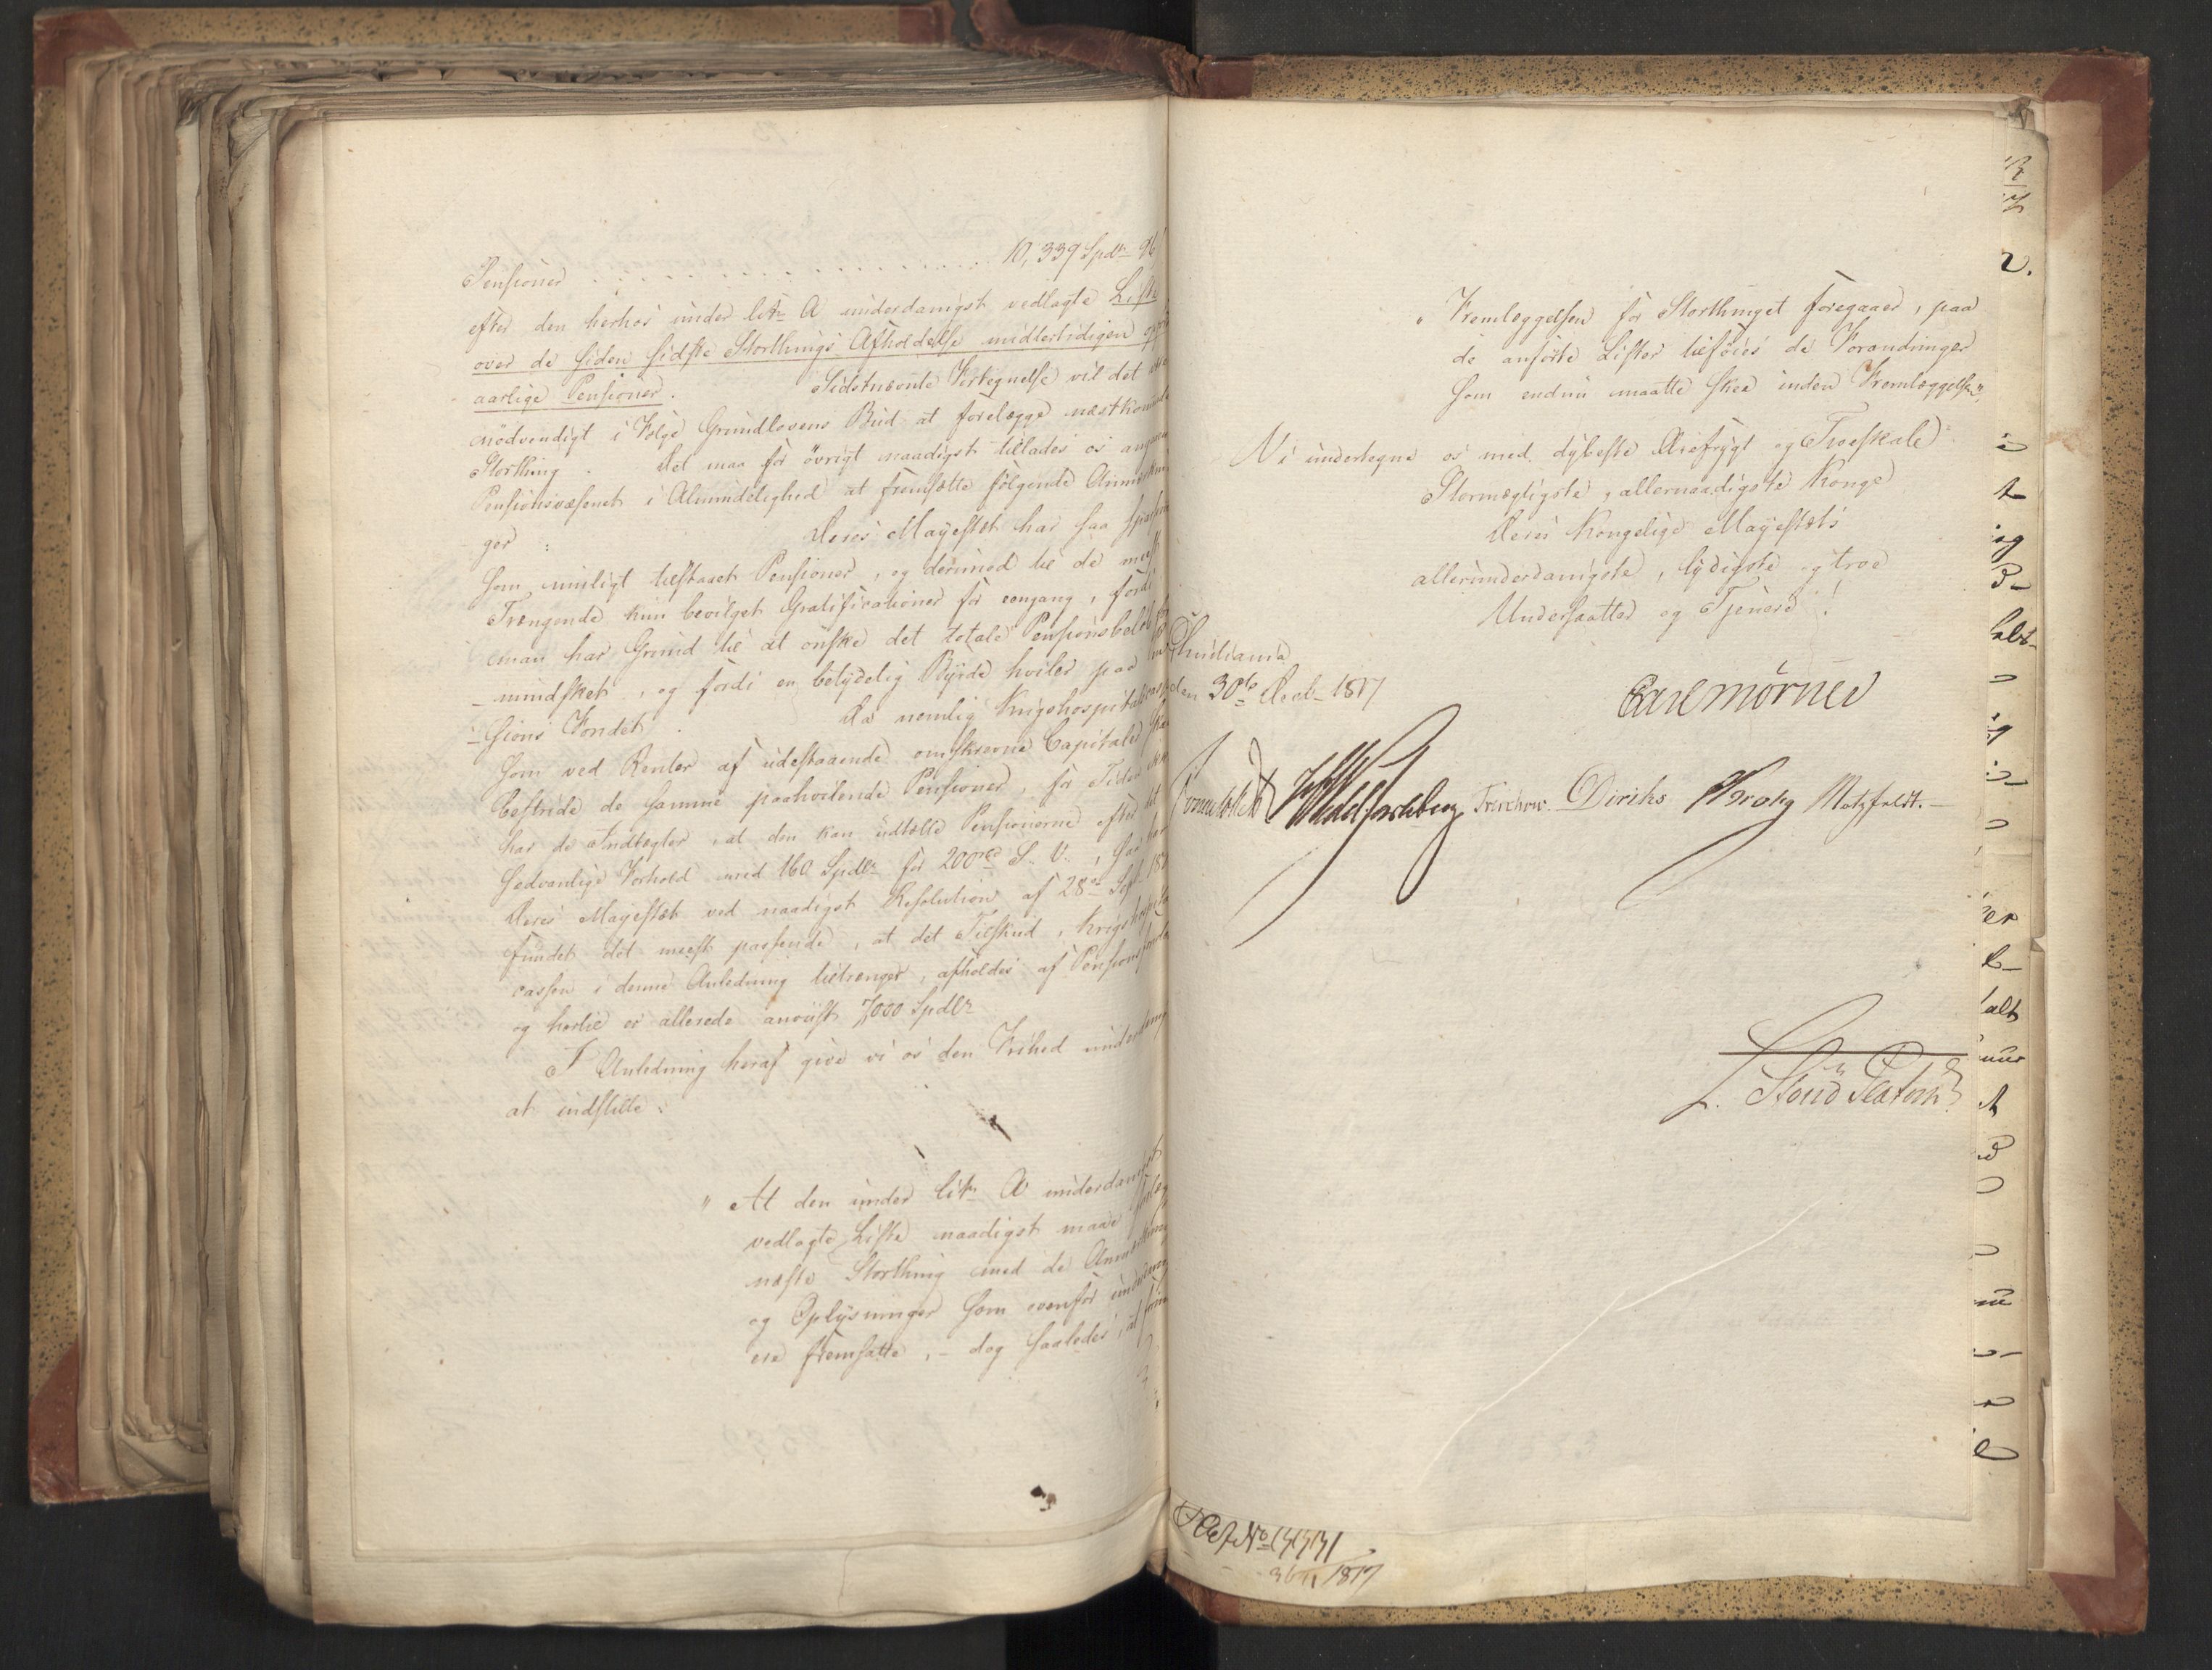 Pensioner . . . . . . . . . . . . . . . . 10,339 Spdlr 96
efter den herhos under litr A underdanigst vedlagte Liste
over de siden sidste Storthings Afholdelse midlertidigen
aarlige Pensioner. Sidstnævnte Fortegnelse vil det
nödvendigt i Følge Grundlovens Bud at forelægge næstkommende
Storthing. Det maa for övrigt naadigst tillades os
Pensionsvæsenet i Almindelighed at fremsætte følgende Anmærknin
ger: Deres Majestæt har saa
som muligt tilstaaet Pensioner, og derimod til de meest
Trængende kun bevilget Gratificationer for eengang, fordi
man har Grund til at önske det totale Pensionsbelöb
mindsket, og fordi en betydelig Byrde hviler paa
sions Fondet. Da nemlig Krigshospital
som ved Renter af udestaaende omskrevne Capitaler
bestride de samme paahvilende Pensioner, for Tiden
har de Indtægter, at den kan udtælle Pensionerne efter det
sædvanlige Forhold med 160 Spdlr for 200 rd S. V.,
Deres Majestæt ved naadigst Resolution af 28de
fundet det meest passende, at det Tilskud, Krigshospital
cassen i denne Anledning tiltrænger, afholdes af Pensionsfondet
og hertil er allerede anviist 7000 Spdlr
I Anledning heraf give vi os den Frihed underdanigst
at indstille:
" At den under litr A underdanigst
vedlagte Liste naadigst maae
næste Storthing med de Anmærkning
og Oplysninger som ovenfor
ere fremsatte, - dog saaledes, at
" Fremlæggelsen for Storthinget foregaaer, paa
de anførte Lister tilföies de Forandringer
som endnu maatte skee inden Fremlæggelsen".
Vi undertegne os med dybeste Ærefrygt og Troeskab
Stormægtigste, allernaadigste Konge
Deres Kongelige Majestæts
allerunderdanigste, lydigste og troe
Undersaatter og Tjenere!
Christiania
den 30te Decb 1817
Carl Mörner
Sommerhielm HWedel Jarlsberg Treschow Diriks Krohg Motzfeldt.
L. Stoud Platou
Act No
1817